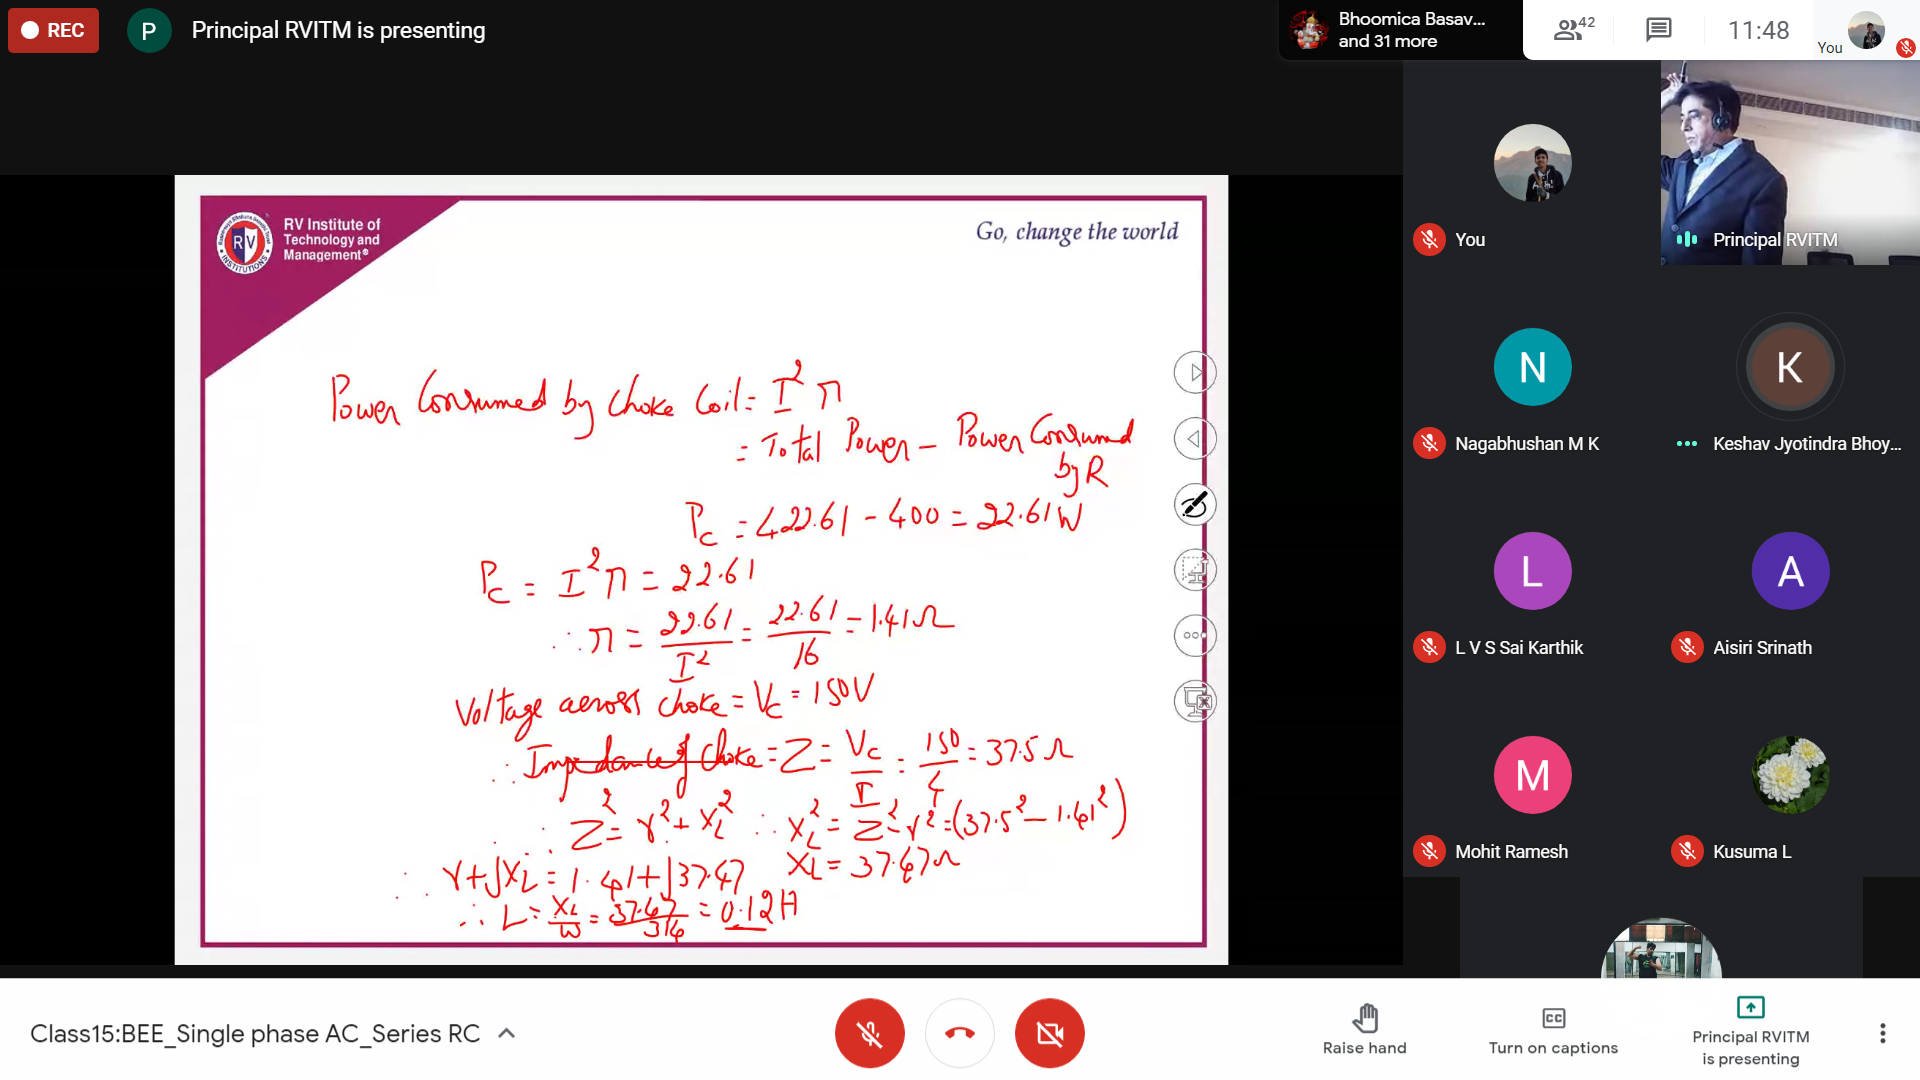 REC
P
Principal RVITM is presenting
Bhoomica Basav...
and 31 more
42
11:48
You
RV Institute of
Technology and
Management®
RV
INSTITUTIONS
Go, change the world
Power Consumed by Choke Coil = I² r
= Total Power – Power Consumed
by R
Pc = 422.61 - 400 = 22.61 W
Pc = I² r = 22.61
∴ r = 22.61/I² = 22.61/16 = 1.41 Ω
Voltage across choke = Vc = 150V
∴ Impedance of choke = Z = Vc/I = 150/4 = 37.5 Ω
∴ Z² = r² + XL² ∴ XL² = Z² - r² = (37.5² - 1.41²)
XL = 37.47 Ω
∴ r + jXL = 1.41 + j37.47
∴ L = XL/ω = 37.47/314 = 0.12 H
You
Principal RVITM
N
Nagabhushan M K
K
Keshav Jyotindra Bhoy...
L
L V S Sai Karthik
A
Aisiri Srinath
M
Mohit Ramesh
Kusuma L
Class15:BEE_Single phase AC_Series RC
Raise hand
CC
Turn on captions
Principal RVITM
is presenting